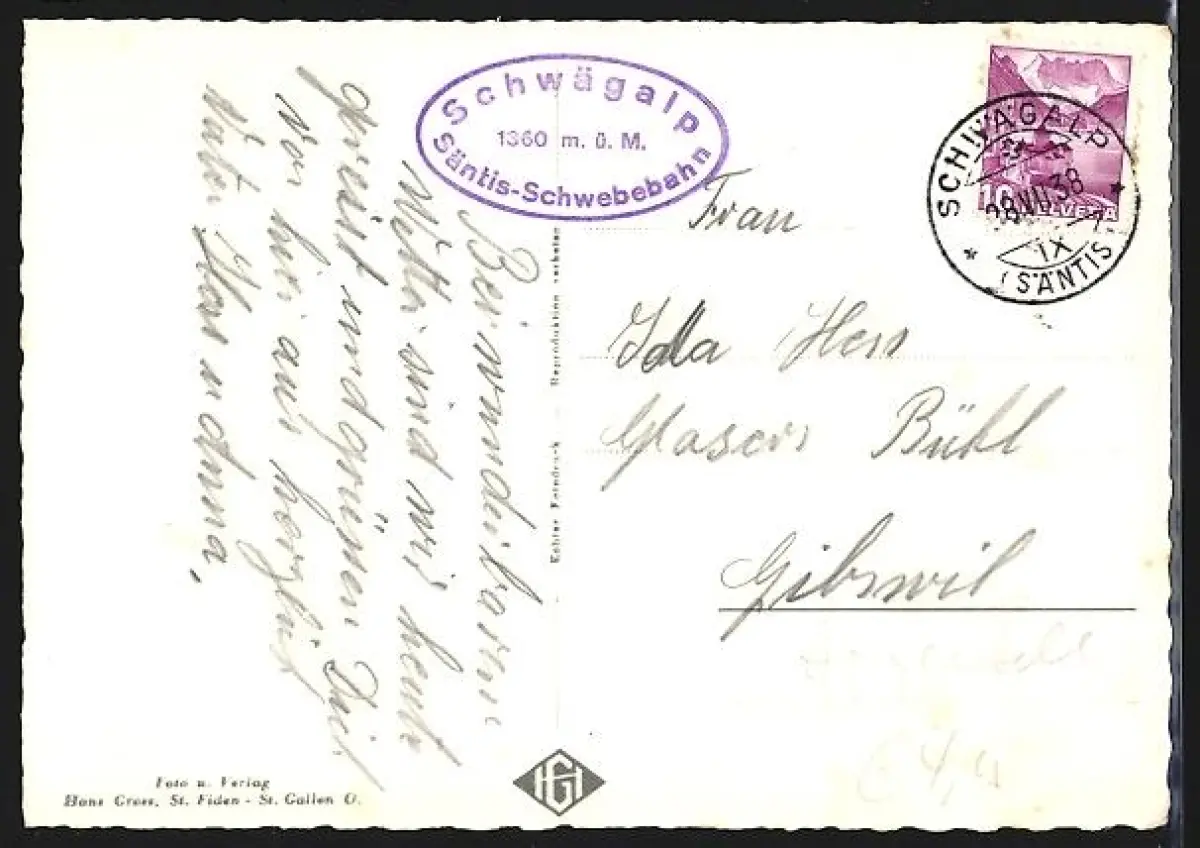 Schwägalp
1360 m. ü. M.
Säntis-Schwebebahn
Bei wunderbarem
Wetter sind wir heute
und grüssen Dich
von hier aus herzlich
Vater Max u Anna,
Echter Fotodruck
Reproduktion verboten
10 HELVETIA
SCHWÄGALP
28.VII.38
IX
(SÄNTIS)
Frau
Ida Hess
Glasers Bühl
Gibswil
Foto u. Verlag
Hans Gross, St. Fiden - St. Gallen O.
HG